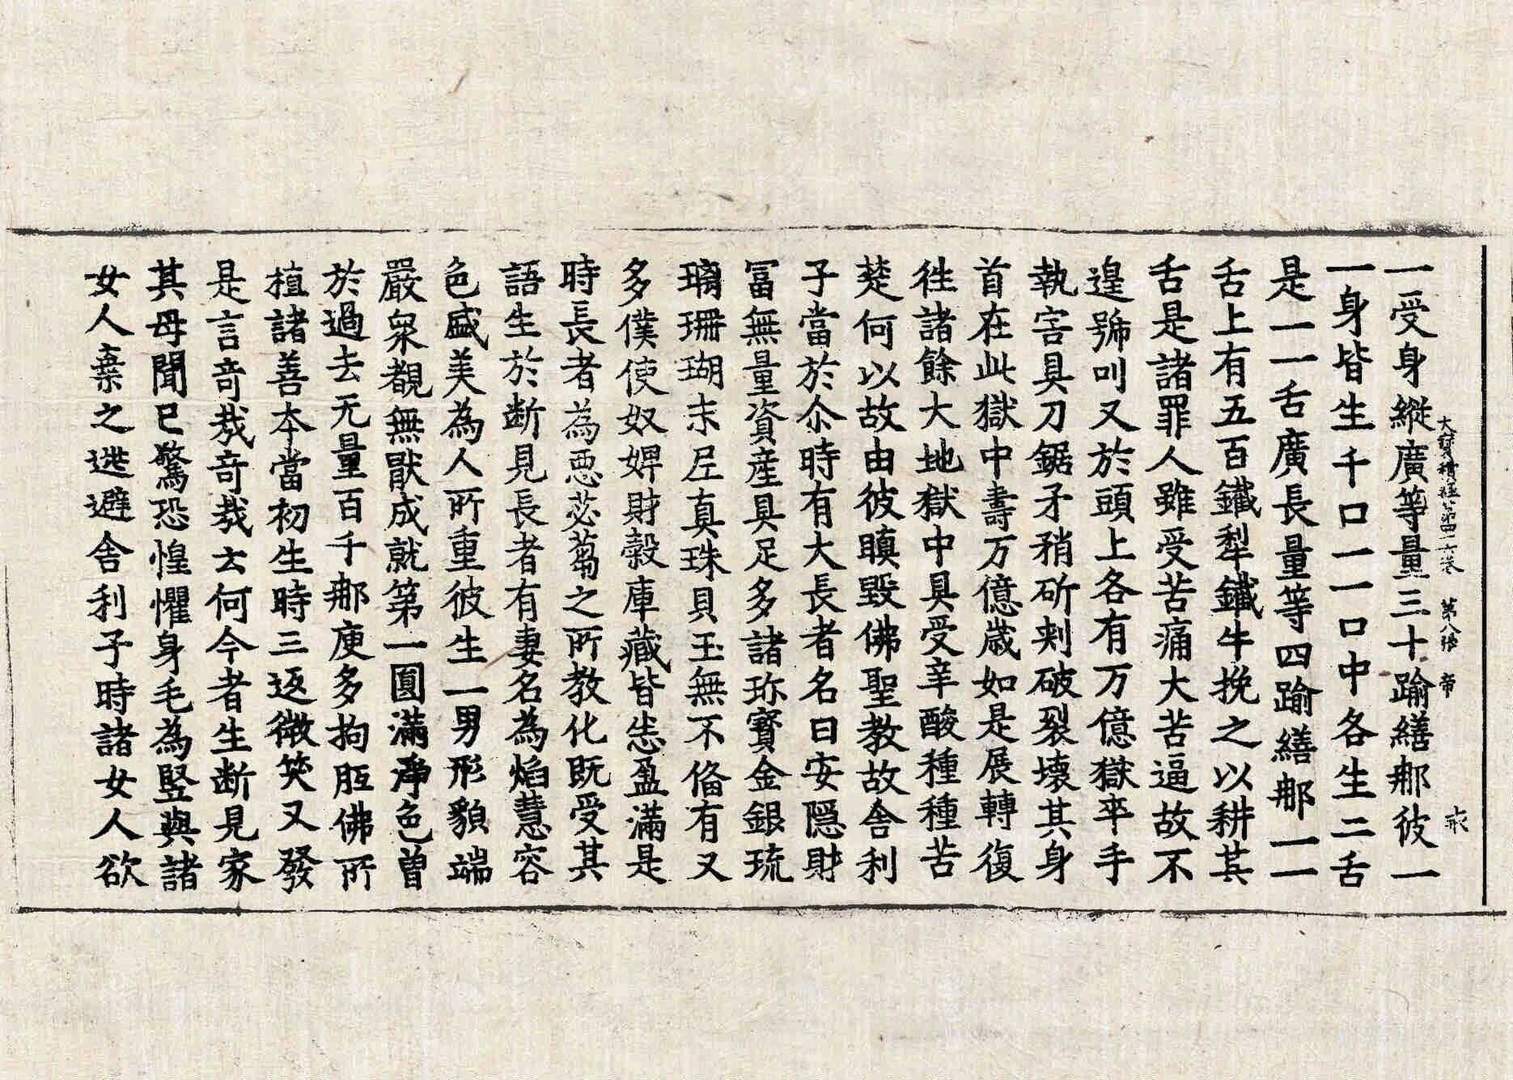 大寶積經第四十六卷　第八張　帝　戒
一受身縱廣等量三十踰繕那彼一
一身皆生千口一一口中各生二舌
是一一舌廣長量等四踰繕那一一
舌上有五百鐵犁鐵牛挽之以耕其
舌是諸罪人雖受苦痛大苦逼故不
遑號叫又於頭上各有万億獄卒手
執害具刀鋸矛矟斫刺破裂壞其身
首在此獄中壽万億歲如是展轉復
往諸餘大地獄中具受辛酸種種苦
楚何以故由彼瞋毀佛聖教故舍利
子當於尒時有大長者名曰安隱財
冨無量資産具足多諸珎寶金銀琉
璃珊瑚末尼真珠貝玉無不俻有又
多僕使奴婢財穀庫藏皆悉盈滿是
時長者為惡苾蒭之所教化既受其
語生於断見長者有妻名為焰慧容
色盛美為人所重彼生一男形貌端
嚴衆覩無猒成就第一圓滿淨色曽
於過去无量百千那庾多拘胝佛所
植諸善本當初生時三返微笑又發
是言奇哉奇哉云何今者生断見家
其母聞已驚恐惶懼身毛為竪與諸
女人棄之逃避舍利子時諸女人欲